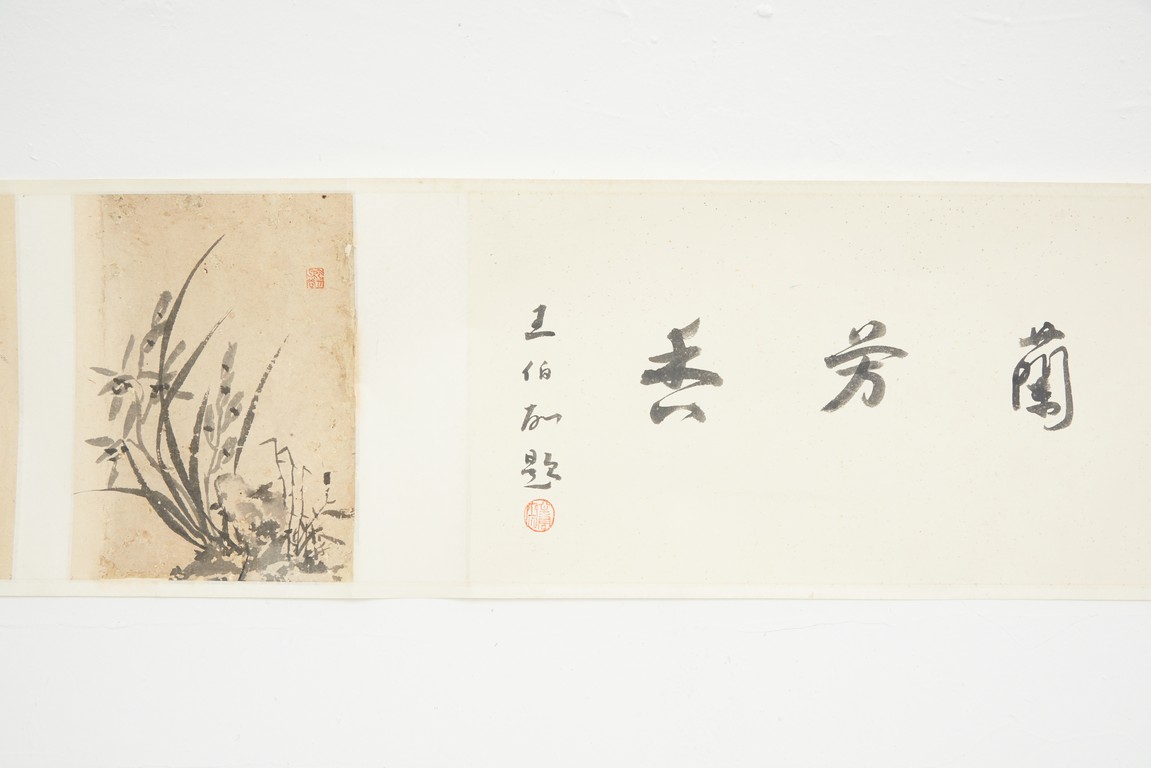 蘭芳香
王伯敏題